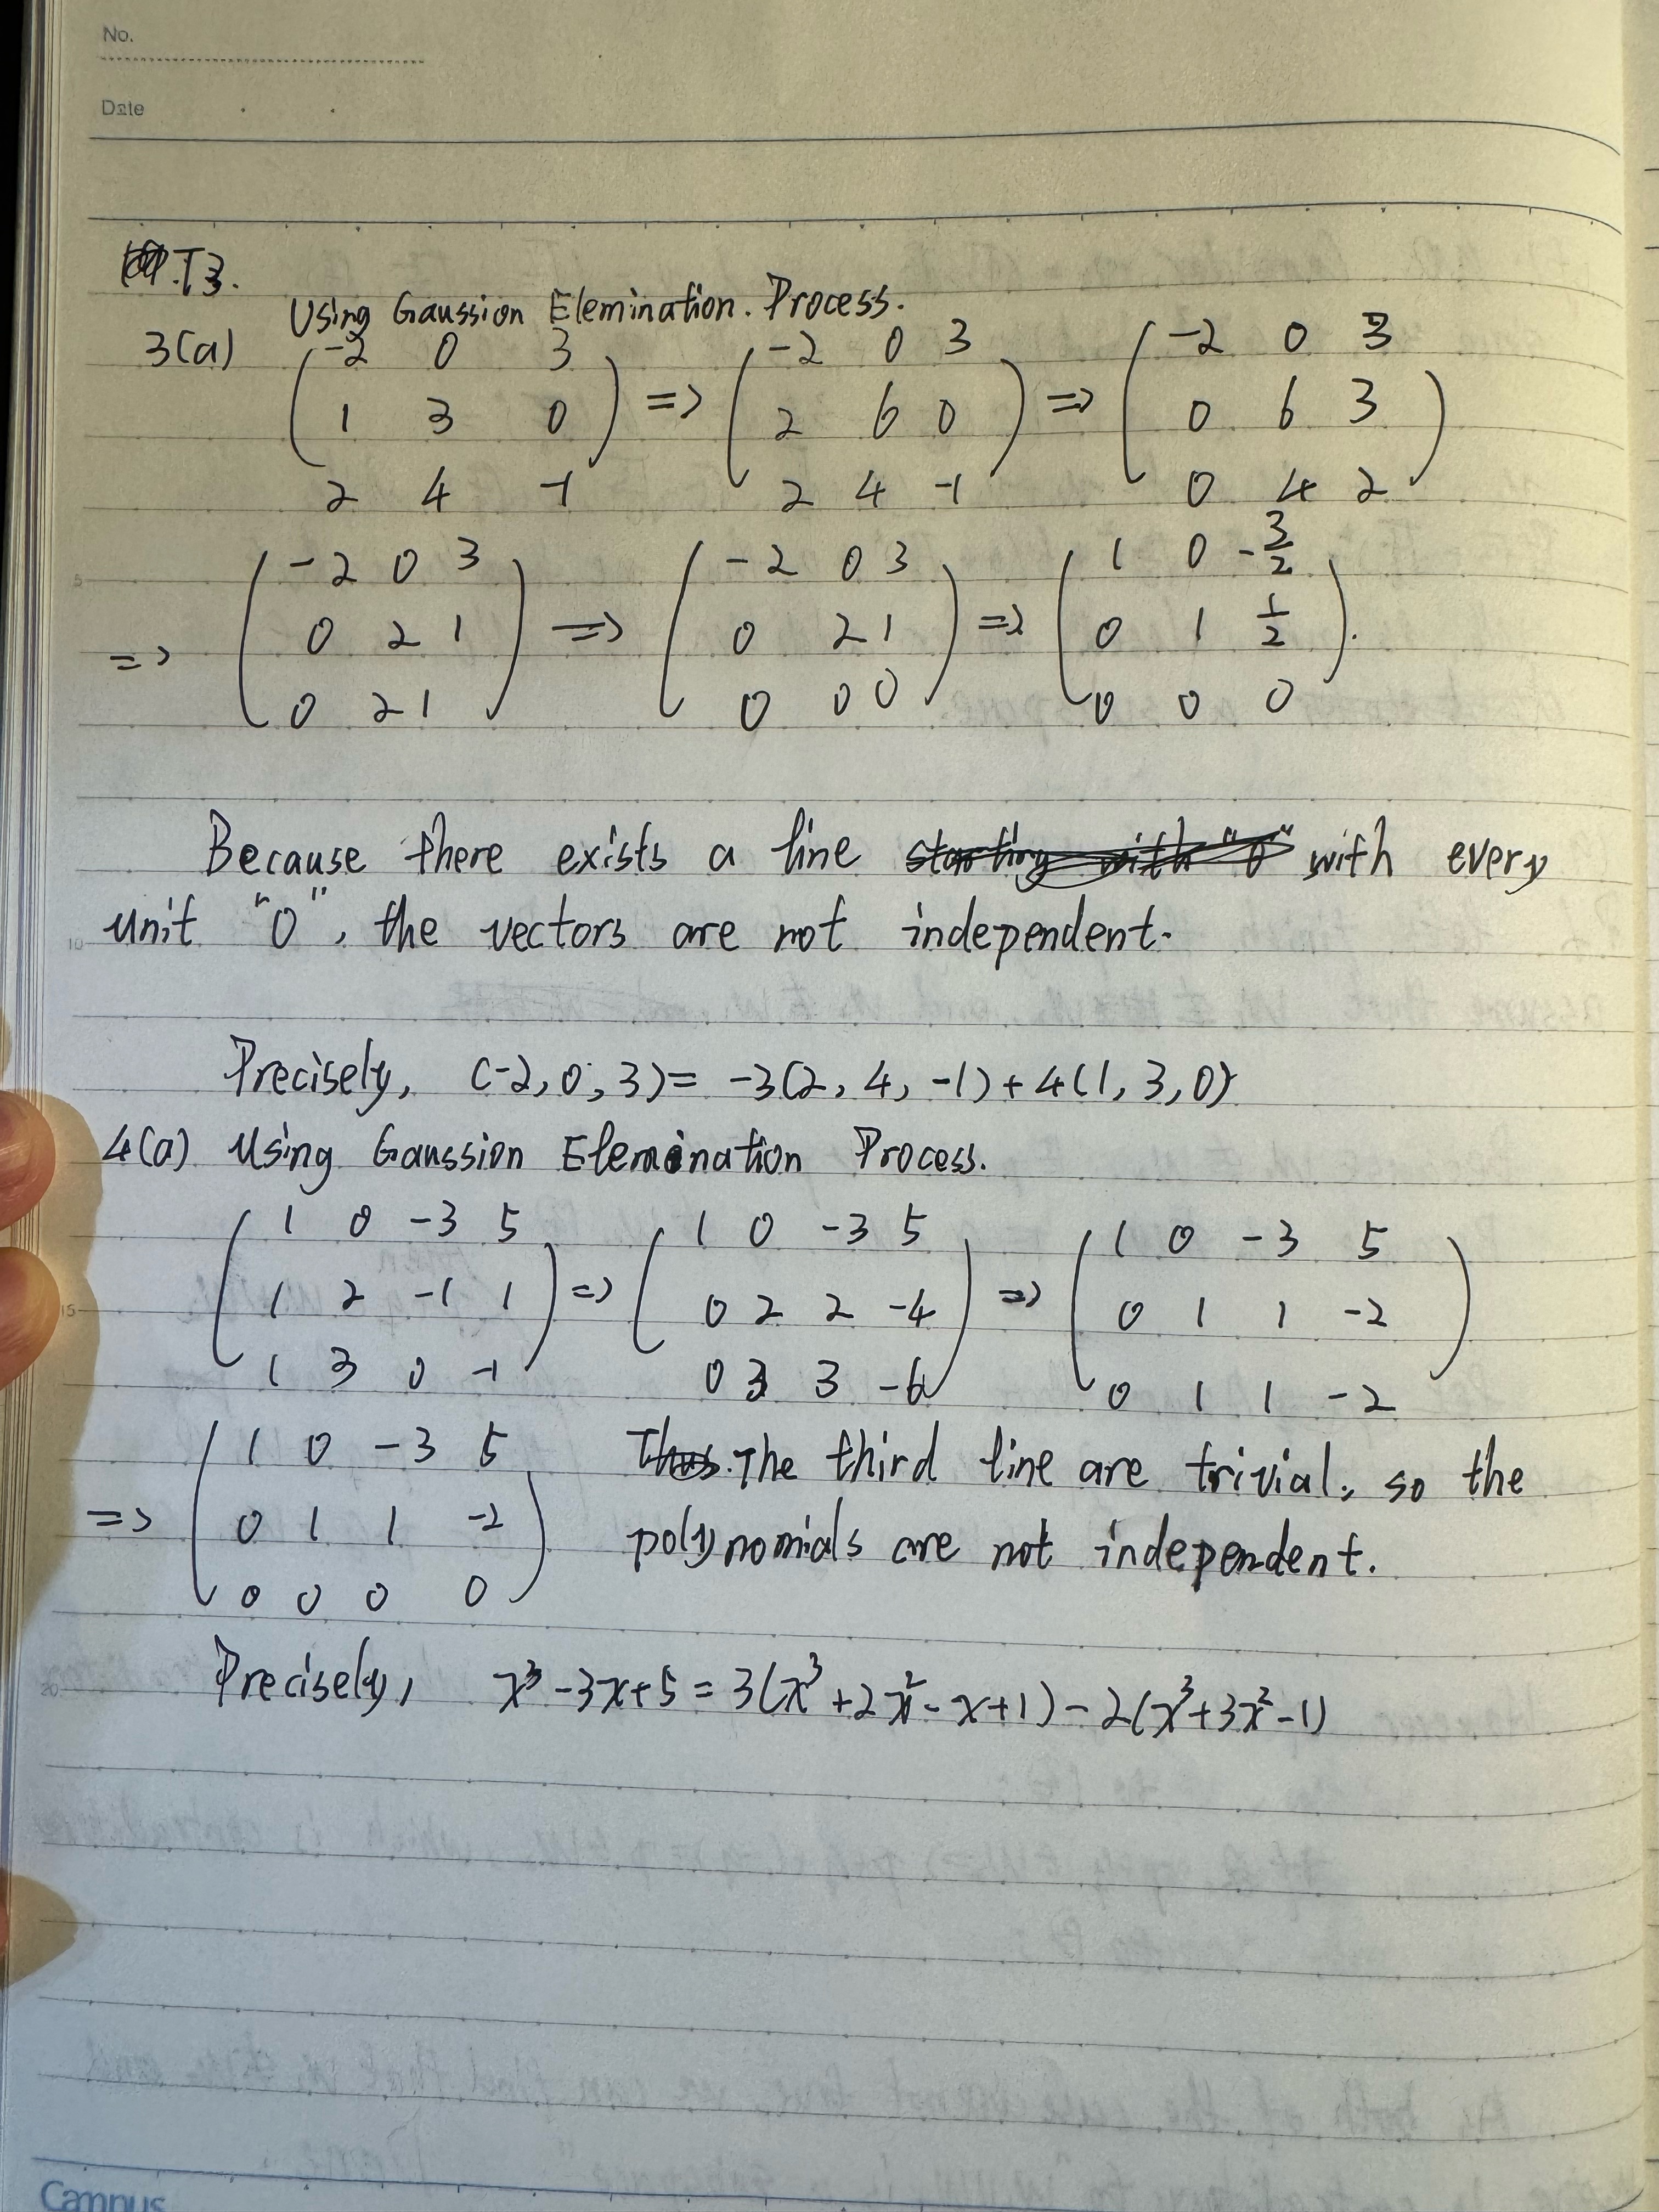 No.
Date
T3.
Using Gaussion Elemination. Process.
3(a) (-2 0 3 => (-2 0 3 => (-2 0 3
1 3 0) 2 6 0) 0 6 3)
2 4 -1 2 4 -1 0 4 2
(-2 0 3) (-2 0 3) (1 0 -3/2)
=> 0 2 1 => 0 2 1 => 0 1 1/2 .
0 2 1 0 0 0 0 0 0
Because there exists a line starting with "0" with every
unit "0", the vectors are not independent.
Precisely, (-2, 0, 3) = -3(2, 4, -1) + 4(1, 3, 0)
4(a) Using Gaussion Elemination Process.
(1 0 -3 5 (1 0 -3 5 (1 0 -3 5
1 2 -1 1) => 0 2 2 -4) => 0 1 1 -2)
1 3 0 -1 0 3 3 -6 0 1 1 -2
(1 0 -3 5 Thus. The third line are trivial, so the
=> 0 1 1 -2) polynomials are not independent.
0 0 0 0
Precisely, x³-3x+5 = 3(x³+2x²-x+1) - 2(x³+3x²-1)
5
10
15
20
Campus